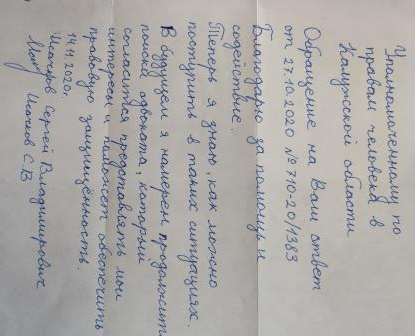 Уполномоченному по
правам человека в
Калужской области
Обращение на Ваш ответ
от 27.10.2020 № 710-20/1383
Благодарю за помощь и
содействие.
Теперь я знаю, как можно
поступить в таких ситуациях.
В будущем я намерен продолжить
поиски адвоката, который
согласится представлять мои
интересы и поможет обеспечить
правовую защищённость.
14.11.2020г.
Сергей Владимирович
С.В